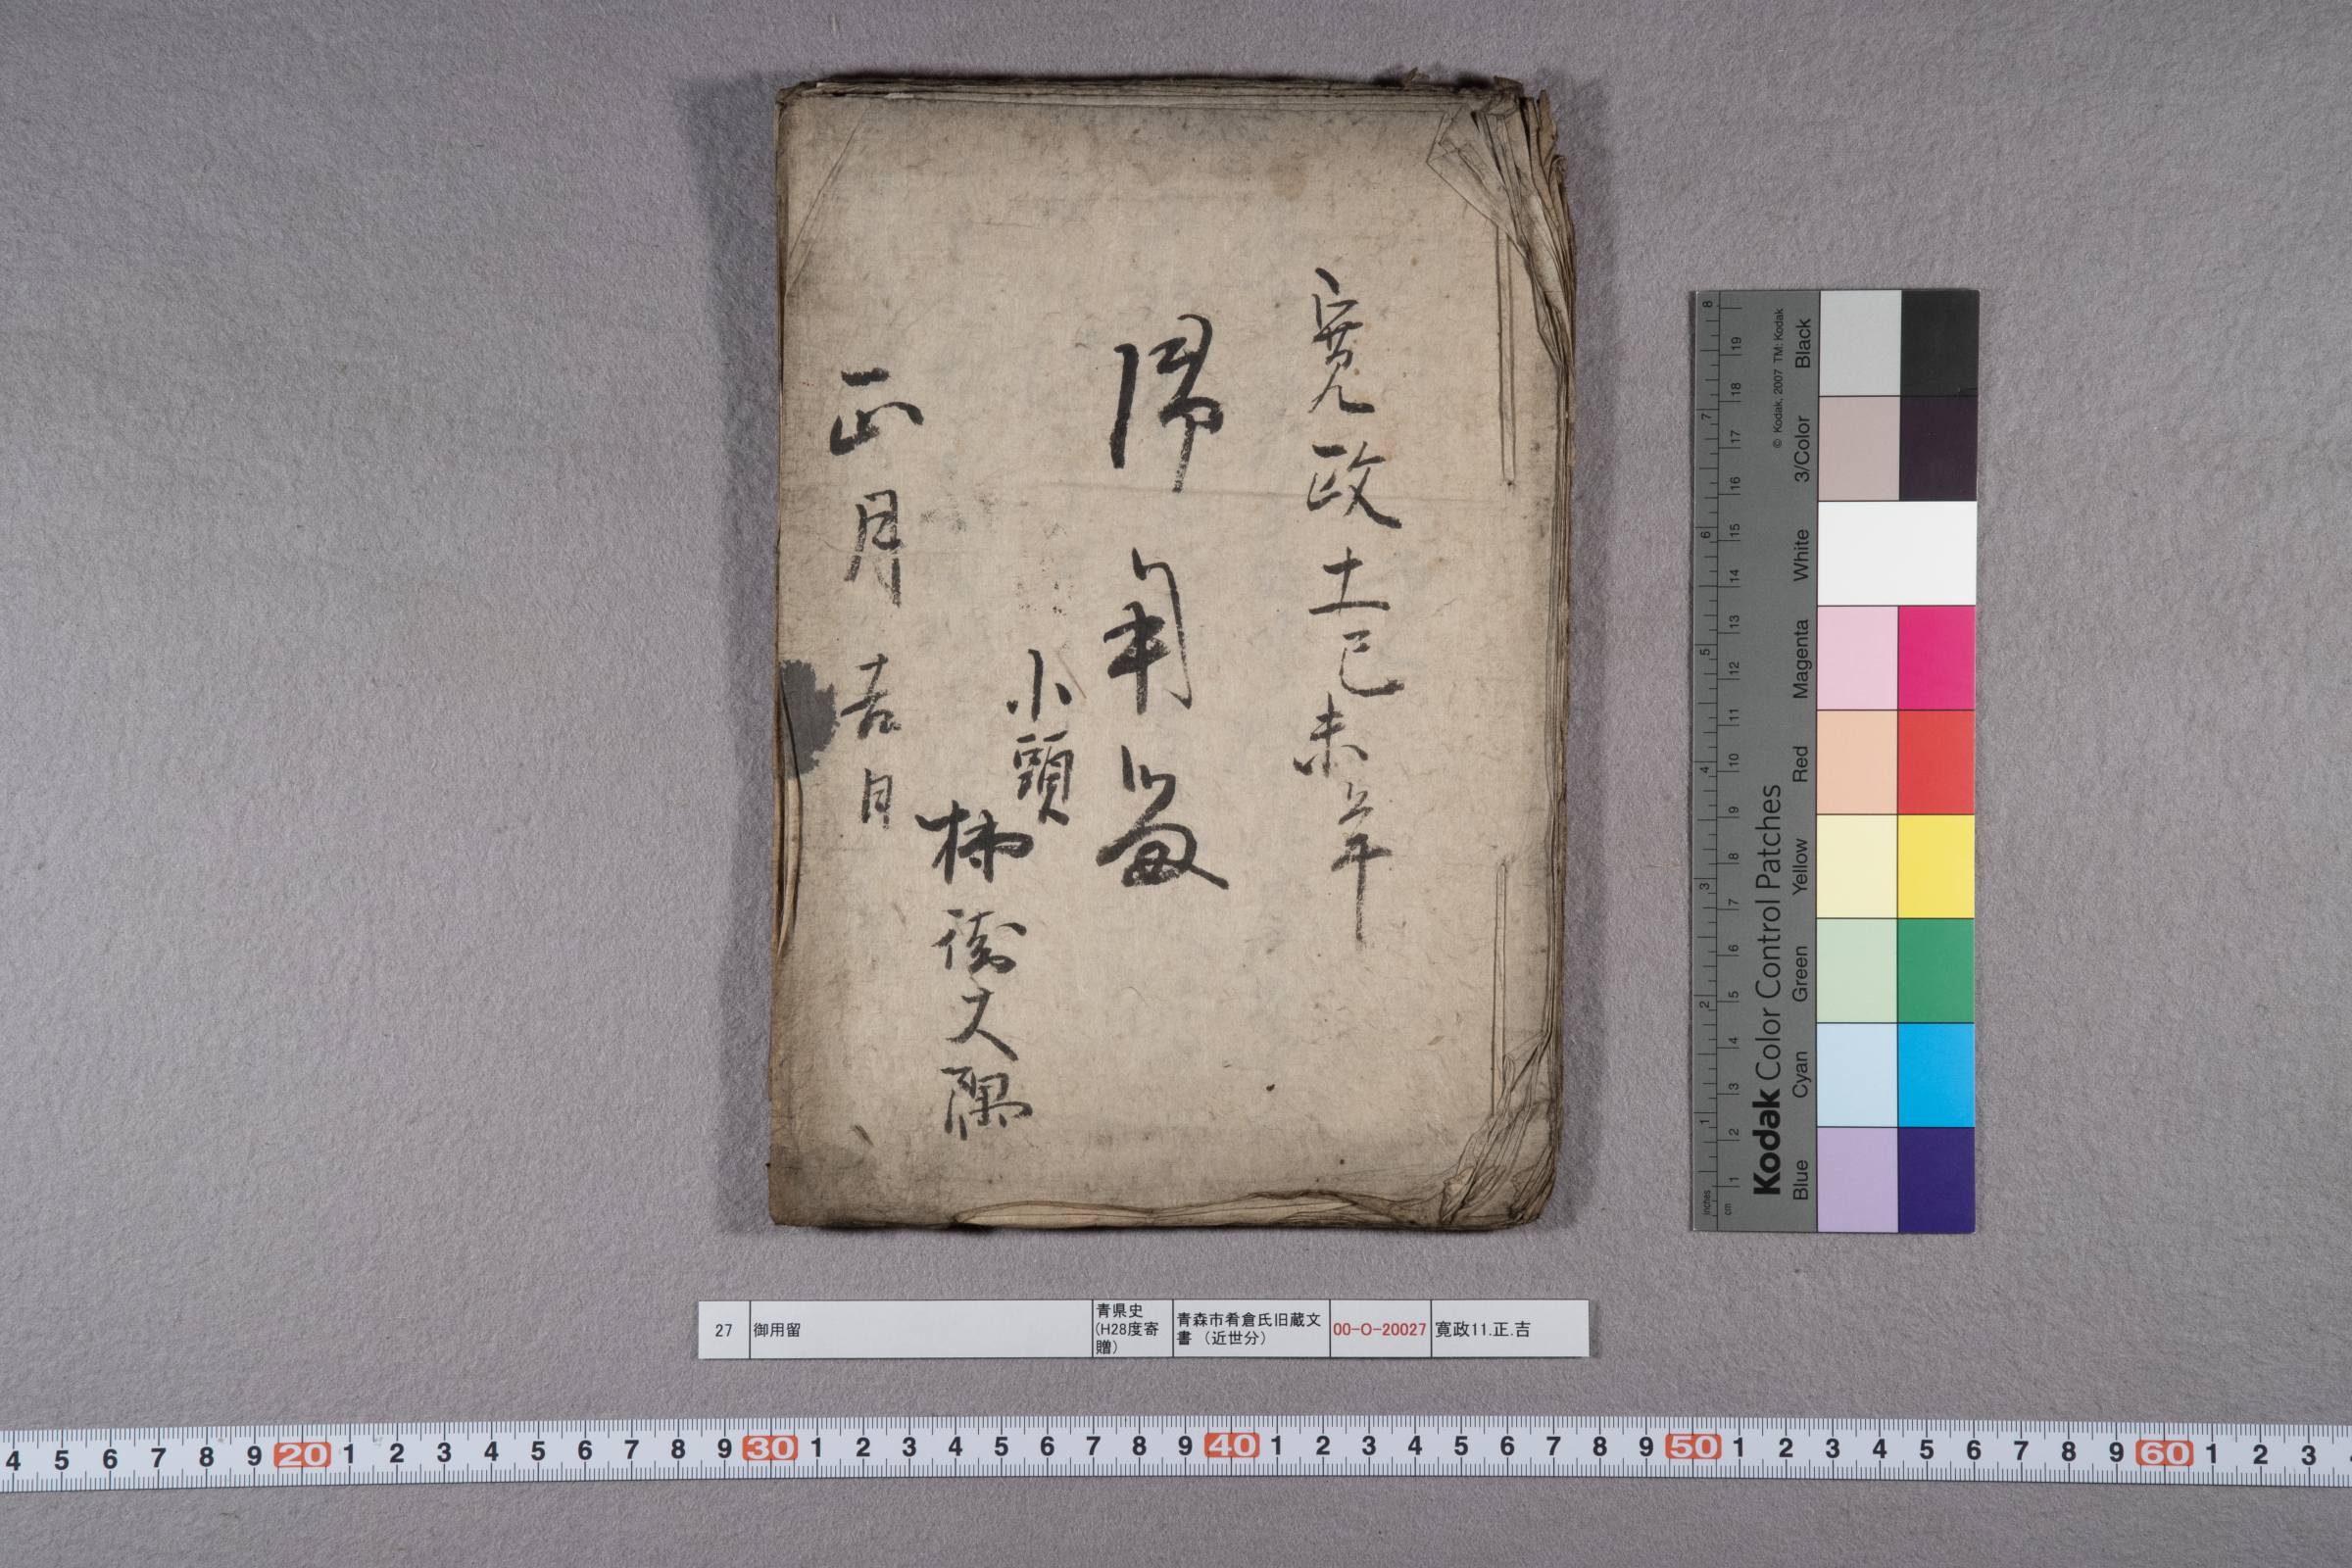 寛政十一己未年
御用留
小頭
柿崎大隅
正月吉日
Kodak Color Control Patches
© Kodak, 2007 TM: Kodak
Blue Cyan Green Yellow Red Magenta White 3/Color Black
inches 1 2 3 4 5 6 7 8
cm 1 2 3 4 5 6 7 8 9 10 11 12 13 14 15 16 17 18 19
27 御用留 青県史(H28度寄贈) 青森市肴倉氏旧蔵文書（近世分） 00-O-20027 寛政11.正.吉
4 5 6 7 8 9 20 1 2 3 4 5 6 7 8 9 30 1 2 3 4 5 6 7 8 9 40 1 2 3 4 5 6 7 8 9 50 1 2 3 4 5 6 7 8 9 60 1 2 3